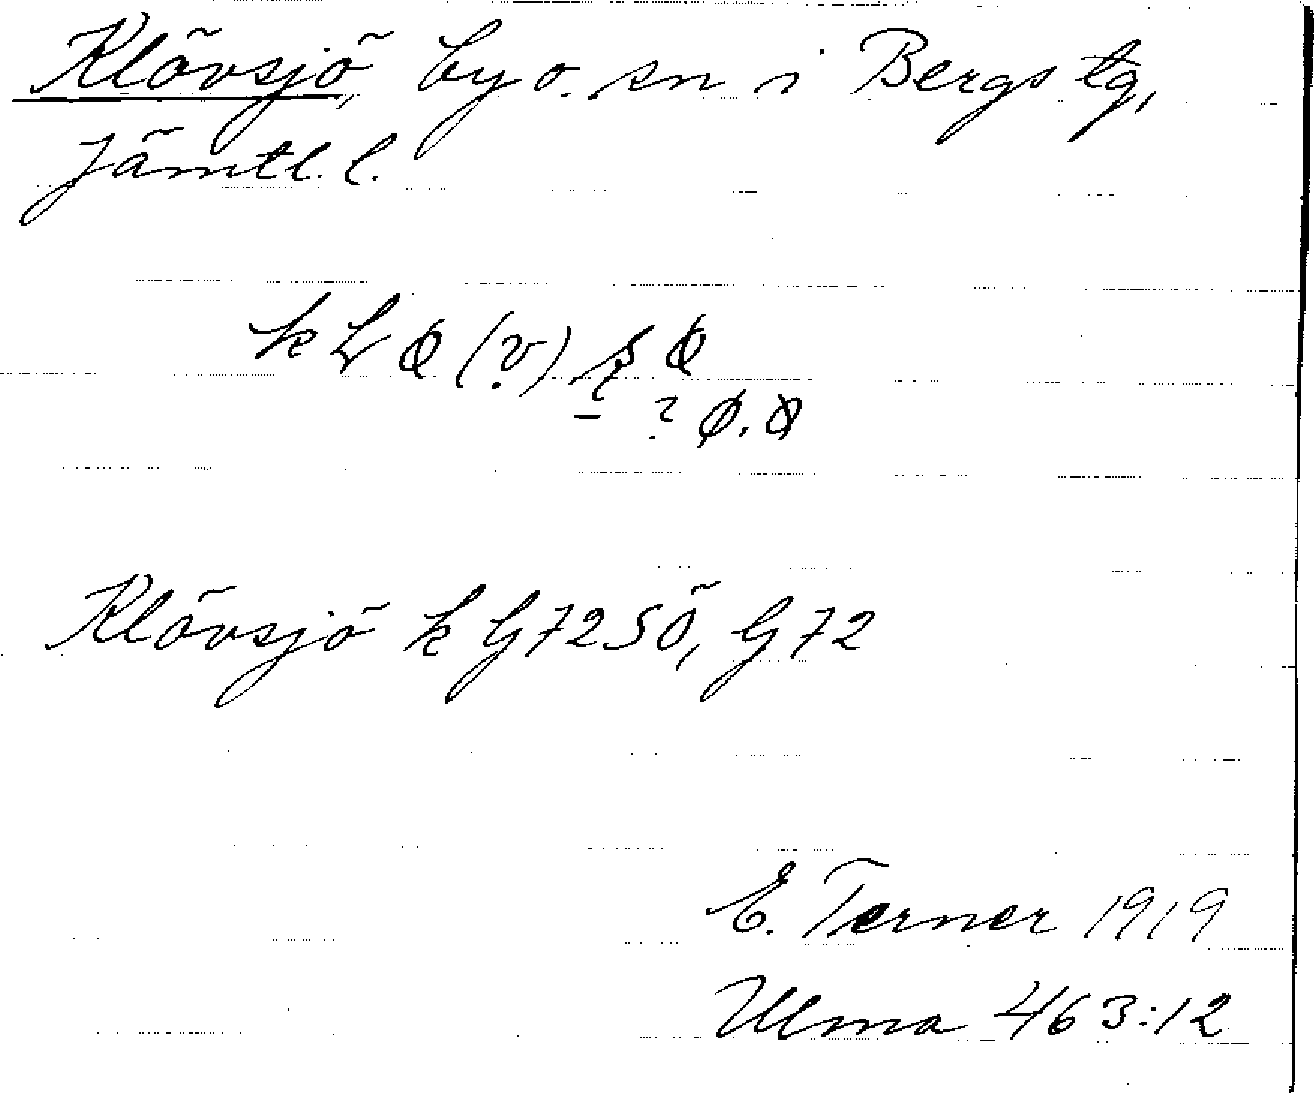 Klövsjö, by o. sn i Bergs tg,
Jämtl. l.
Klövsjö k G72SÖ, G72
E. Terner 1919
Ulma 463:12